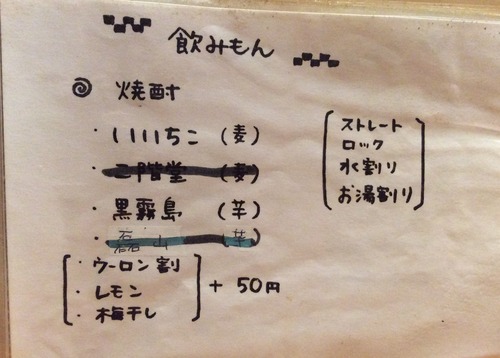 飲みもん
焼酎
・いいちこ(麦)
・二階堂(麦)
・黒霧島(芋)
・磊山(芋)
・ウーロン割
・レモン
・梅干し
+50円
ストレート
ロック
水割り
お湯割り